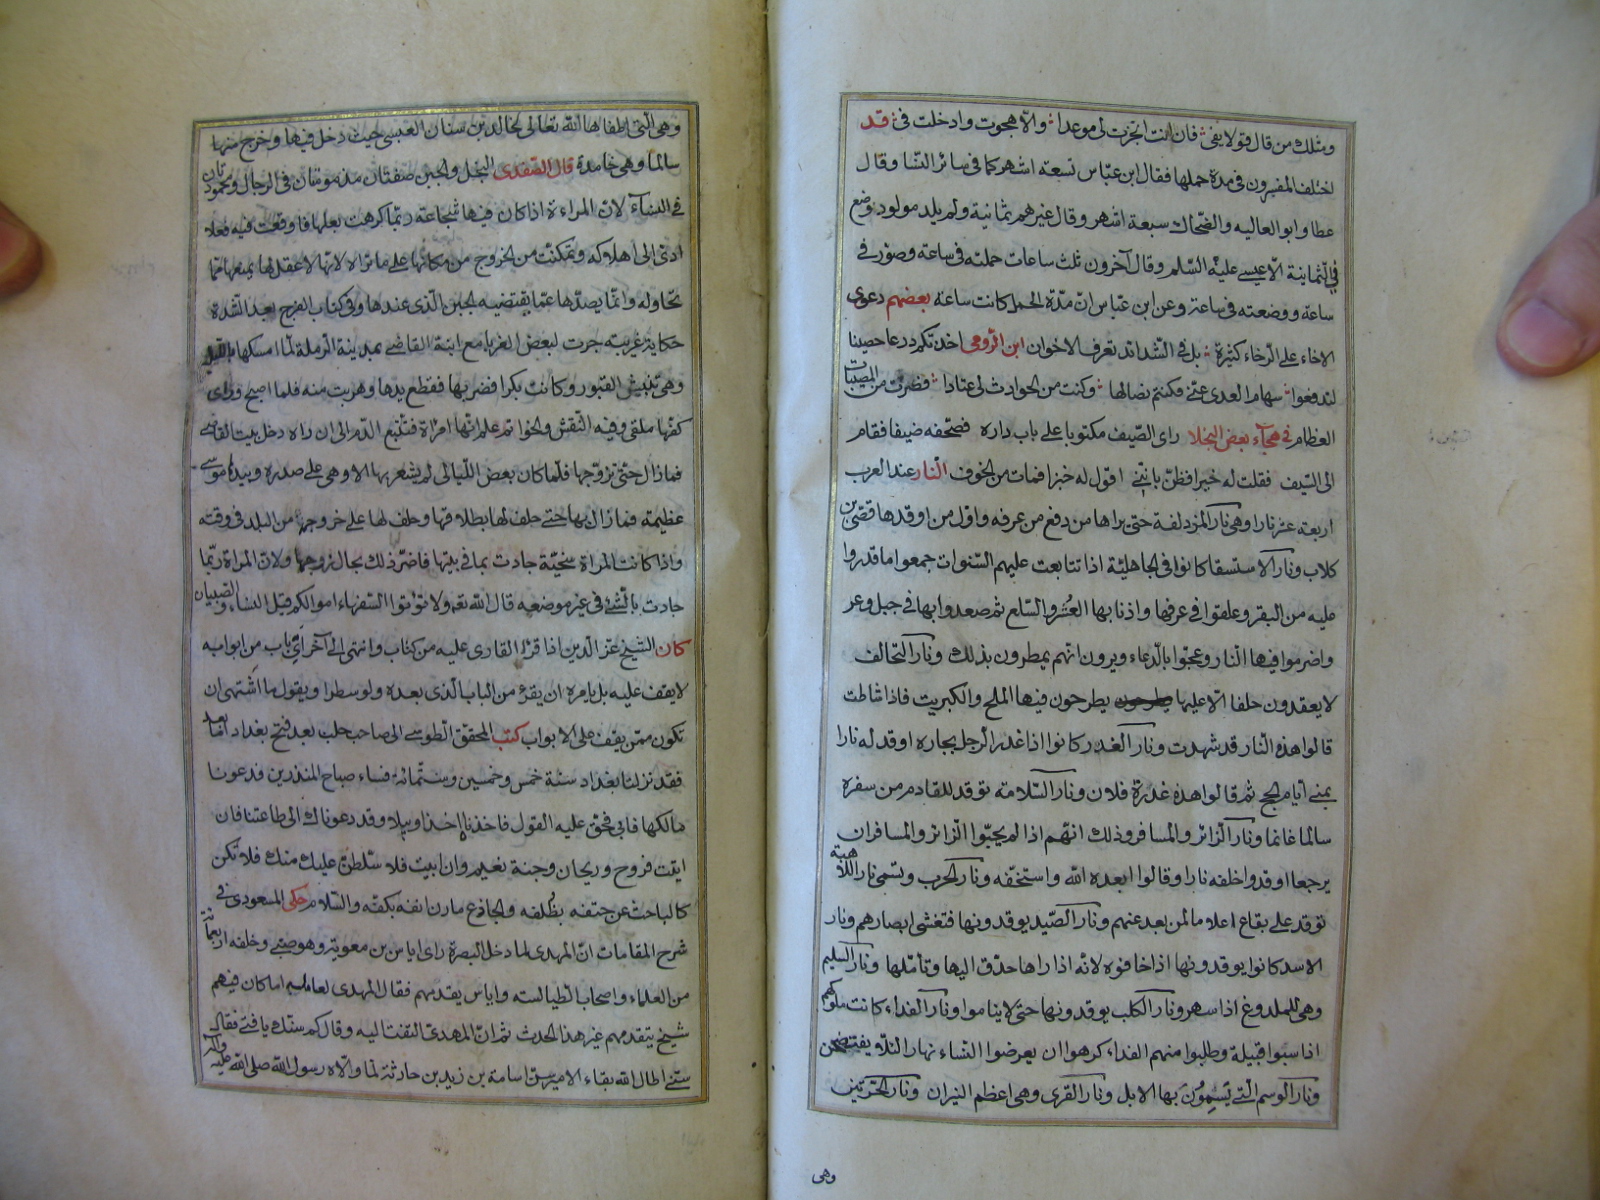 ومثلك من قال قولا يفى فان انت انجزت لى موعدا والا هجوت وادخلت فى قد
اختلف المفسرون فى مدة حملها فقال ابن عبّاس تسعة اشهر كما فى سائر النسا وقال
عطا وابو العاليه والضّحاك سبعة اشهر وقال غيرهم ثمانية ولم يلد مولود وضع
فى الثمانية الّا عيسى عليه السّلم وقال آخرون ثلث ساعات حملته فى ساعة وصوّر فى
ساعة ووضعته فى ساعة وعن ابن عبّاس انّ مدّة الحمل كانت ساعة بعضهم دعوى
الاخاء على الرخاء كثيرة بل فى الشدائد تعرف الاخوان ابن الرّومى اخذتكم درعا حصينا
لتدفعوا سهام العدى عنّى فكنتم نصالها وكنت من الحوادث لى عتادا فصرت من المصيبات
العظام فى هجاء بعض البخلا راى الصّيف مكتوبا على باب داره فصحّفه ضيفا فقام
الى السّيف فقلت له خيرا فظنّ باننى اقول له خبزا فمات من الخوف النار عند العرب
اربعة عشر نارا وهى نار المزدلفة حتى يراها من دفع من عرفه واوّل من اوقدها قصى بن
كلاب ونار الاستسقا كانوا فى الجاهليّة اذا تتابعت عليهم السّنوات جمعوا ما قدروا
عليه من البقر وعلقوا فى عرقها واذنابها العُشَر والسّلع ثم صعدوا بها فى جبل وعر
واضرموا فيها النار وعجّوا بالدّعاء ويرون انّهم يمطرون بذلك ونار التحالف
لا يعقدون حلفا الّا عليها يطرحون فيها الملح والكبريت فاذا شاطت
قالوا هذه النّار قد شهدت ونار الغدر كانوا اذا غدر الرجل بجاره اوقد له نارا
بمنى ايّام الحج ثم قالوا هذه غدرة فلان ونار السّلامة توقد للقادم من سفره
سالما غانما ونار الزائر والمسافر وذلك انّهم اذا لم يحبّوا الزائر والمسافر ان
يرجعا اوقدوا خلفه نارا وقالوا ابعده الله واستحقه ونار الحرب وتسمى نار الاهبة
توقد على بقاع اعلاما لمن بعد عنهم ونار الصّيد يوقدونها فتغشى ابصارهم ونار
الاسد كانوا يوقدونها اذا خافوه لانّه اذا راها حدّق اليها وتأمّلها ونار السليم
وهى للملدوغ اذا سهر ونار الكلب يوقدونها حتى لا يناموا ونار الفداء كانت ملوكهم
اذا سبوا قبيلة وطلبوا منهم الفداء كرهوا ان يعرضوا النساء نهارا لئلا يفتضحن
ونار الوسم التى يَسِمُونَ بها الابل ونار القرى وهى اعظم النيران ونار الحرّتين
وهى
وهى الّتى اطفا بها الله تعالى لخالد بن سنان العبسى حيث دخل فيها وخرج منها
سالما وهى خامدة قال الصّفدى البخل والجبن صفتان مذمومتان فى الرجال ومحمودتان
فى النساء لان المراءة اذا كان فيها شجاعة ربّما كرهت بعلها فاوقعت فيه فعلا
ادى الى اهلاكه وتمكنت من الخروج من مكانها على ما تراه لانّها لا عقل لها يمنعها ممّا
تحاوله وانّما يصدّها عمّا يقتضيه الجبن الّذى عندها وفى كتاب الفرج بعد الشدة
حكاية غريبة جرت لبعض الغربا مع ابنة القاضى بمدينة الرّملة لمّا امسكها بالليل
وهى تنبش القبور وكانت بكرا فضربها فقطع يدها وهربت منه فلما اصبح وراى
كفّها ملقى وفيه النّقش والخواتم علم انّها امراة فتتّبع الدم الى ان راه دخل بيت القاضى
فما زال حتى تزوّجها فلمّا كان بعض الليالى لم يشعر بها الا وهى على صدره وبيدها موسى
عظيمة فما زال بها حتى حلف لها بطلاقها وحلف لها على خروجها من البلد فى وقته
واذا كانت المراة سخيّة جادت بما فى بيتها فاضرّ ذلك بحال زوجها ولانّ المراة ربّما
جادت بالشّئ فى غير موضعه قال الله تعه ولا تؤتوا السّفهاء اموالكم قيل النساء والصبيان
كان الشيخ عزّ الدين اذا قرأ القارى عليه من كتاب وانتهى الى آخر اى باب من ابوابه
لا يقف عليه بل يامره ان يقرء من الباب الّذى بعده ولو سطرا ويقول ما اشتهى ان
تكون ممّن يقف على الابواب كتب المحقق الطوسى الى صاحب حلب بعد فتح بغداد امّا بعد
فقد نزلنا بغداد سنة خمس وخمسين وستّمائة فساء صباح المنذرين فدعونا
مالكها فابى فحقّ عليه القول فاخذناه اخذا وبيلا وقد دعوناك الى طاعتنا فان
اتيت فروح وريحان وجنة نعيم وان ابيت فلا سلّطن عليك منك فلا تكن
كالباحث عن حتفه بظلفه والجاذع مارن انفه بكفّه والسّلام حكى المسعودى فى
شرح المقامات انّ المهدى لما دخل البصرة راى اياس بن معوية وهو صبى وخلفه اربعمائة
من العلماء واصحاب الطيالسة واياس يقدمهم فقال المهدى لعامله اما كان فيهم
شيخ يتقدمهم غير هذا الحدث ثم انّ المهدى التفت اليه وقال كم سنّك يا فتى فقال
سنّى اطال الله بقاء الامير سنّ اسامة بن زيد بن حارثة لما ولّاه رسول الله صلى الله عليه وآله